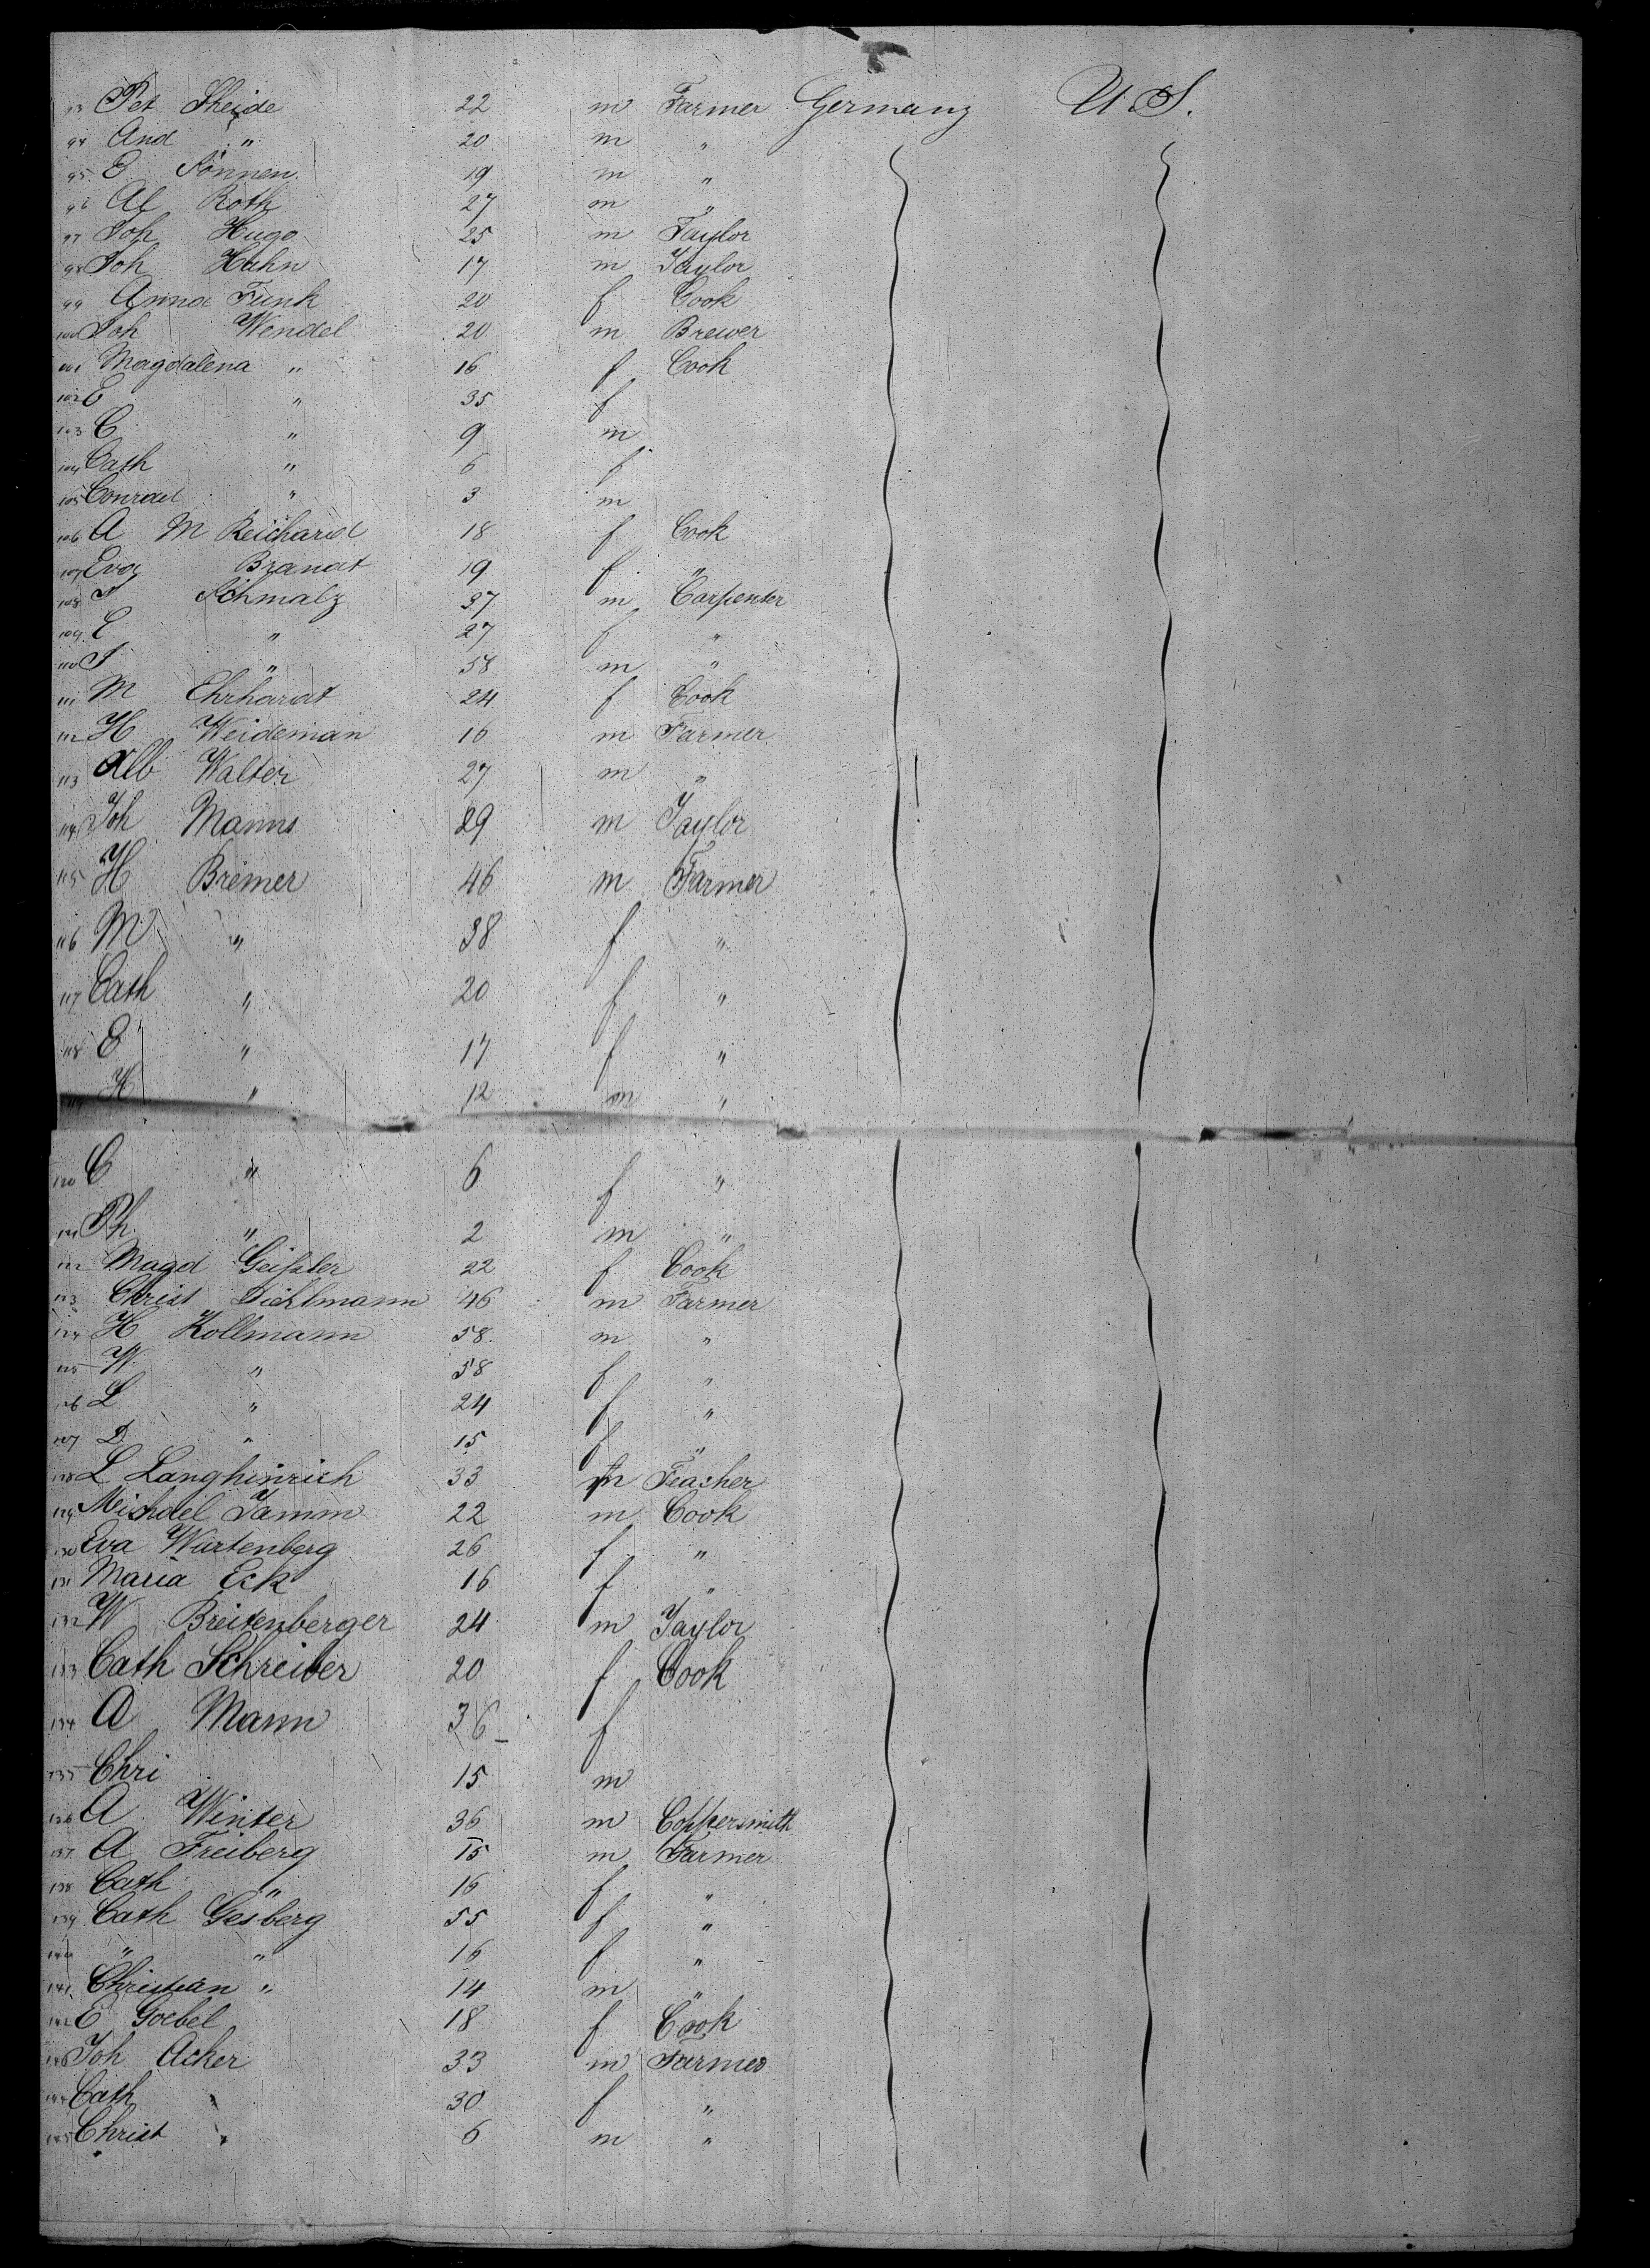 93 Pet Sheide 22 m Farmer Germany U.S.
94 And " 20 m "
95 E Sonnen 19 m "
96 Al Roth 27 m "
97 Joh Hugo 25 m Taylor
98 Joh Hahn 17 m Taylor
99 Anna Funk 20 f Cook
100 Joh Wendel 20 m Brewer
101 Magdalena " 16 f Cook
102 E " 35 f
103 C " 9 m
104 Cath " 6 f
105 Conrad " 3 m
106 A M Reichard 18 f Cook
107 Eva Brandt 19 f "
108 J Schmalz 37 m Carpenter
109 E " 27 f "
110 J " 58 m "
111 M Ehrhardt 24 f Cook
112 H Weideman 16 m Farmer
113 Alb Walter 27 m "
114 Joh Manns 29 m Taylor
115 H Bremer 46 m Farmer
116 M " 38 f "
117 Cath " 20 f "
118 E " 17 f "
119 H " 12 m "
120 C " 6 f "
121 Ph " 2 m "
122 Magd Geißler 22 f Cook
123 Christ Diehlmann 46 m Farmer
124 H Kollmann 58 m "
125 W " 58 f "
126 L " 24 f "
127 D " 15 f "
128 L Langheinrich 33 m Teacher
129 Michael Tamm 22 m Cook
130 Eva Wartenberg 26 f "
131 Maria Eck 16 f "
132 W Breitenberger 24 m Taylor
133 Cath Schreiber 20 f Cook
134 A Mann 36 f
135 Chri 15 m
136 A Winter 36 m Coppersmith
137 A Freiberg 15 m Farmer
138 Cath " 16 f "
139 Cath Gesberg 55 f "
140 " " 16 f "
141 Christian " 14 m "
142 E Goebel 18 f Cook
143 Joh Acker 33 m Farmer
144 Cath " 30 f "
145 Christ " 6 m "